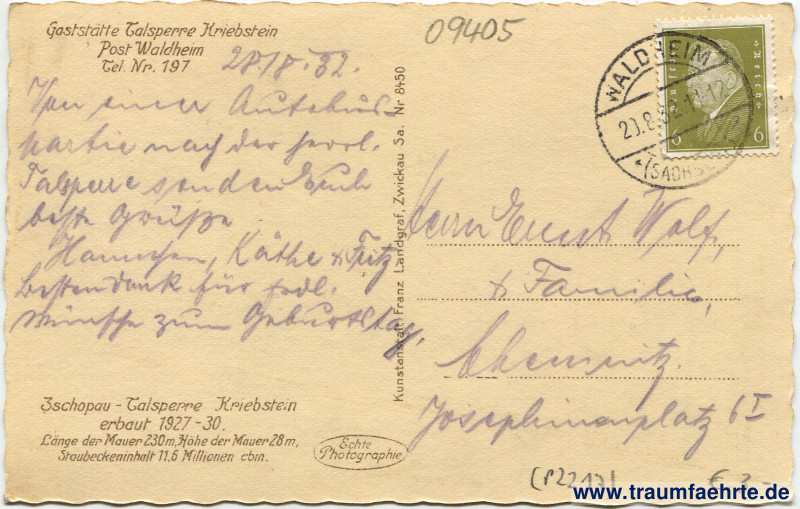 Gaststätte Talsperre Kriebstein
Post Waldheim
Tel. Nr. 197
28/8.32.
Von einer Autobus-
partie nach der herrl.
Talsperre senden Euch
beste Grüße
Hannchen, Käthe & Fritz
Bestendank für frdl.
Wünsche zum Geburtstag.
Zschopau - Talsperre Kriebstein
erbaut 1927-30.
Länge der Mauer 230m, Höhe der Mauer 28m,
Staubeckeninhalt 11,6 Millionen cbm.
Echte
Photographie
Kunstanstalt Franz Landgraf, Zwickau Sa. Nr 8450
09405
WALDHEIM
(SACHSEN)
Deutsches Reich
6 6
Herrn Ernst Wolf,
& Familie,
Chemnitz.
Josephinenplatz 6 I
(P2217)
€ 3,-
www.traumfaehrte.de